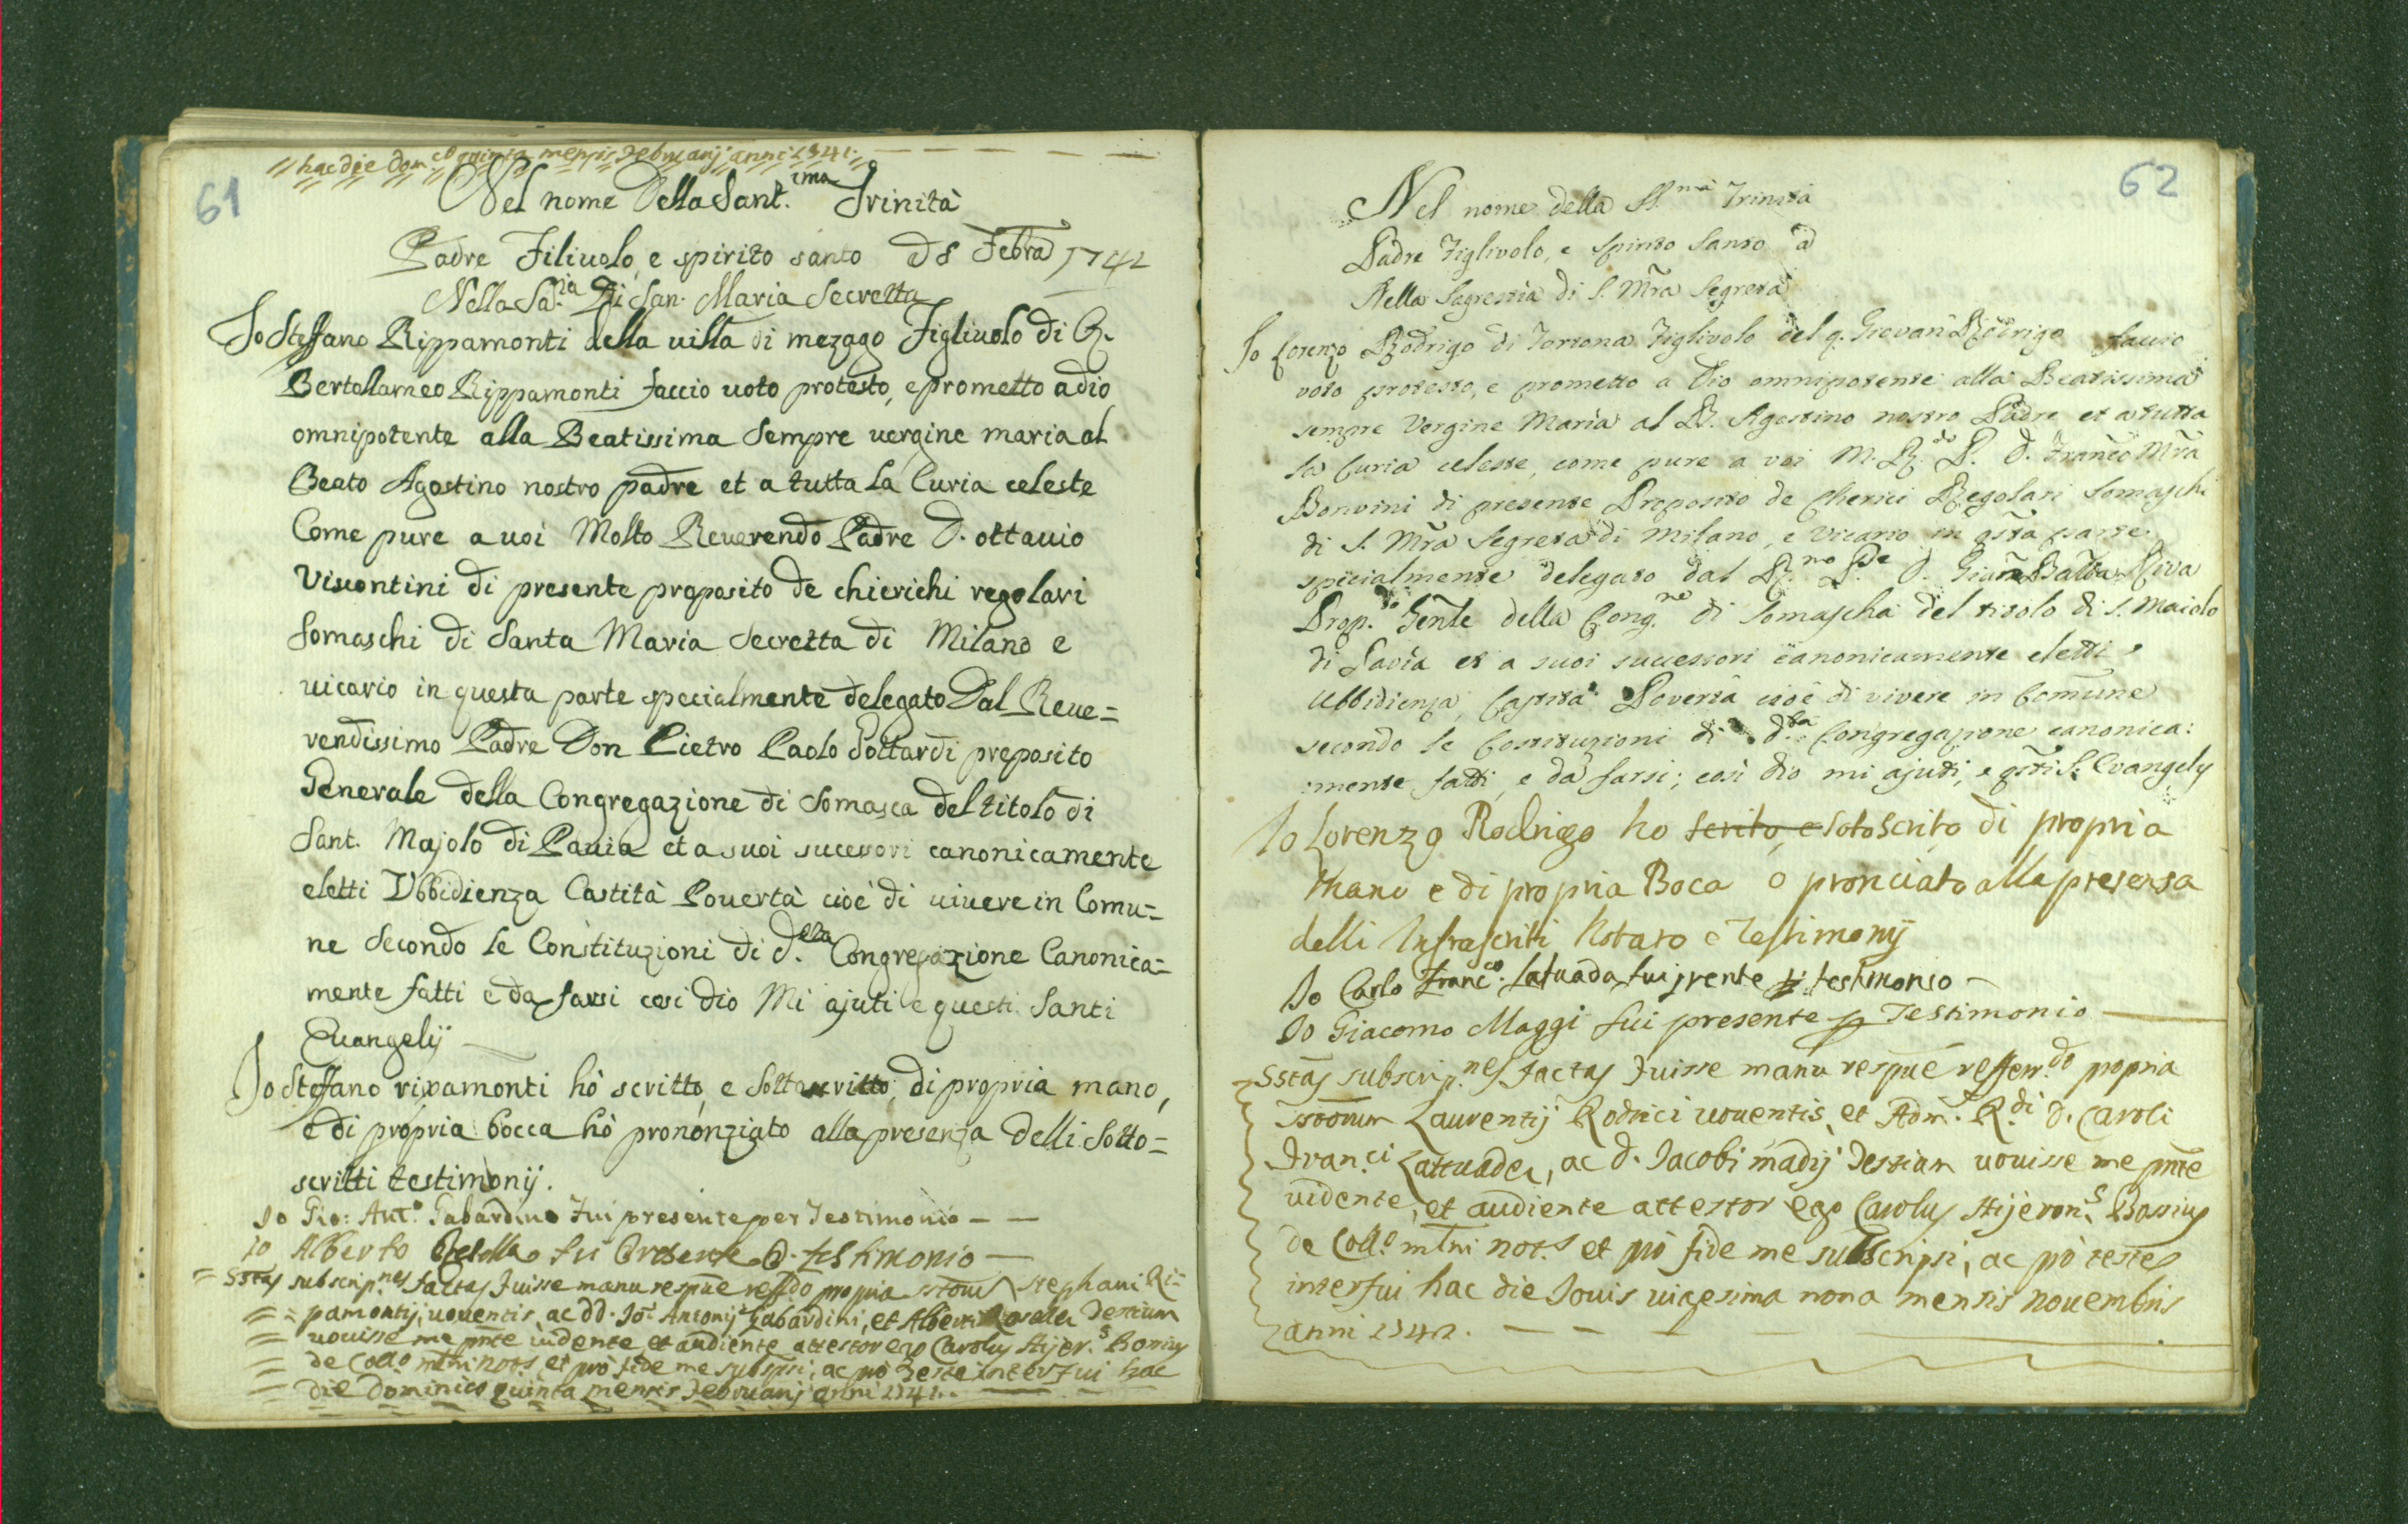 61
hac die dom.co quinta mensis Februarij anni 1741.
Nel nome Della Sant.ima Trinità
Padre Filiuolo, e spirito santo Ad 8 Febra 1741
Nella Sa.ia Di San. Maria Secretta
Io Steffano Rippamonti della villa di mezago Figliuolo di Q.
Bertollameo Rippamonti faccio uoto protesto, e prometto a dio
omnipotente alla Beatissima Sempre uergine maria al
Beato Agostino nostro padre et a tutta La Curia celeste
Come pure a uoi Molto Reuerendo Padre D. ottauio
Viscontini di presente proposito de chierichi regolari
Somaschi di Santa Maria Secretta di Milano e
uicario in questa parte specialmente delegato Dal Reue=
rendissimo Padre Don Pietro Paolo Gottardi preposito
Generale della Congregazione di Somasca del titolo di
Sant. Majolo di Pauia et a suoi sucessori canonicamente
eletti Vbbidienza Castità Pouertà cioè di uiuere in Comu=
ne Secondo le Constituzioni di d.ella Congregazione Canonica=
mente fatti e da farsi cosi dio Mi ajuti e questi Santi
Euangelij
Io Steffano ripamonti hò scritto, e Sottascritto, di propria mano,
e di propria bocca hò prononziato alla presenza delli Sotto=
scritti testimonij.
Io Gio: Ant.o Gabardino Fui presente per Testimonio — —
io Alberto fui Presente testimonio —
SStas subscrip.nes factas Fuisse manu respue reff.do propria sstorum Stephani Ri=
pamontij, uouentis, ac dd. Jo: Antonij Gabardini, et Alberti Testium
uouisse me pnte uidente et audiente attestor ego Carolus Hijer.s Bossius
de Collo mlni not.s et pro fide me subspsi, ac pro Teste interfui hac
die dominico quinta mensis Februarij anni 1741. —
62
Nel nome della SS.ma Trinità
Padre Figlivolo, e Spirito Santo a
Nella Sagrestia di S. Mra Segreta
Io Lorenzo Rodrigo di Tortona Figlivolo del q. Giovan Rodrigo faccio
voto protesto, e prometto a Dio omnipotente alla Beatissima
sempre Vergine Maria al B. Agostino nostro Padre et a tutta
la Curia celeste, come pure a voi M. R.do P. D. Franco Mra
Bonvini di presente Proposito de Cherici Regolari Somaschi
di S. Mra Segreta di Milano, e Vicario in qsta parte
specialmente delegato dal R.mo Pde D. Gian Batta Riva
Prop.to Genle della Cong.ne di Somascha del titolo di S. Maiolo
di Pavia et a suoi successori canonicamente eletti
Ubbidienza, Castità Povertà cioè di vivere in Comune
secondo le Costituzioni di d.ta Congregazione canonica:
:mente fatti, e da farsi; così dio mi ajuti, e qsti S. Evangely
Io Lorenzo Rodrigo ho scrito, e sotoscrito di propria
mano e di propria Boca o pronciato alla presensa
delli Infrascriti Notaro e Testimonij
Io Carlo Franc.co Latuada fui prente p. testimonio —
Io Giacomo Maggi fui presente p Testimonio —
SStas subscrip.nes factas Fuisse manu respue reffer.do propria
sstorum Laurentij Rodrici uouentis, et Adm. R.di D. Caroli
Fran.ci Lattuadæ, ac D. Jacobi madij Testium uouisse me pnte
uidente, et audiente attestor ego Carolus Hijeron.s Bossius
de Coll.o mlni not.s et pro fide me subscripsi, ac pro teste
interfui hac die Jouis uigesima nona mensis nouembris
anni 1742. — — —